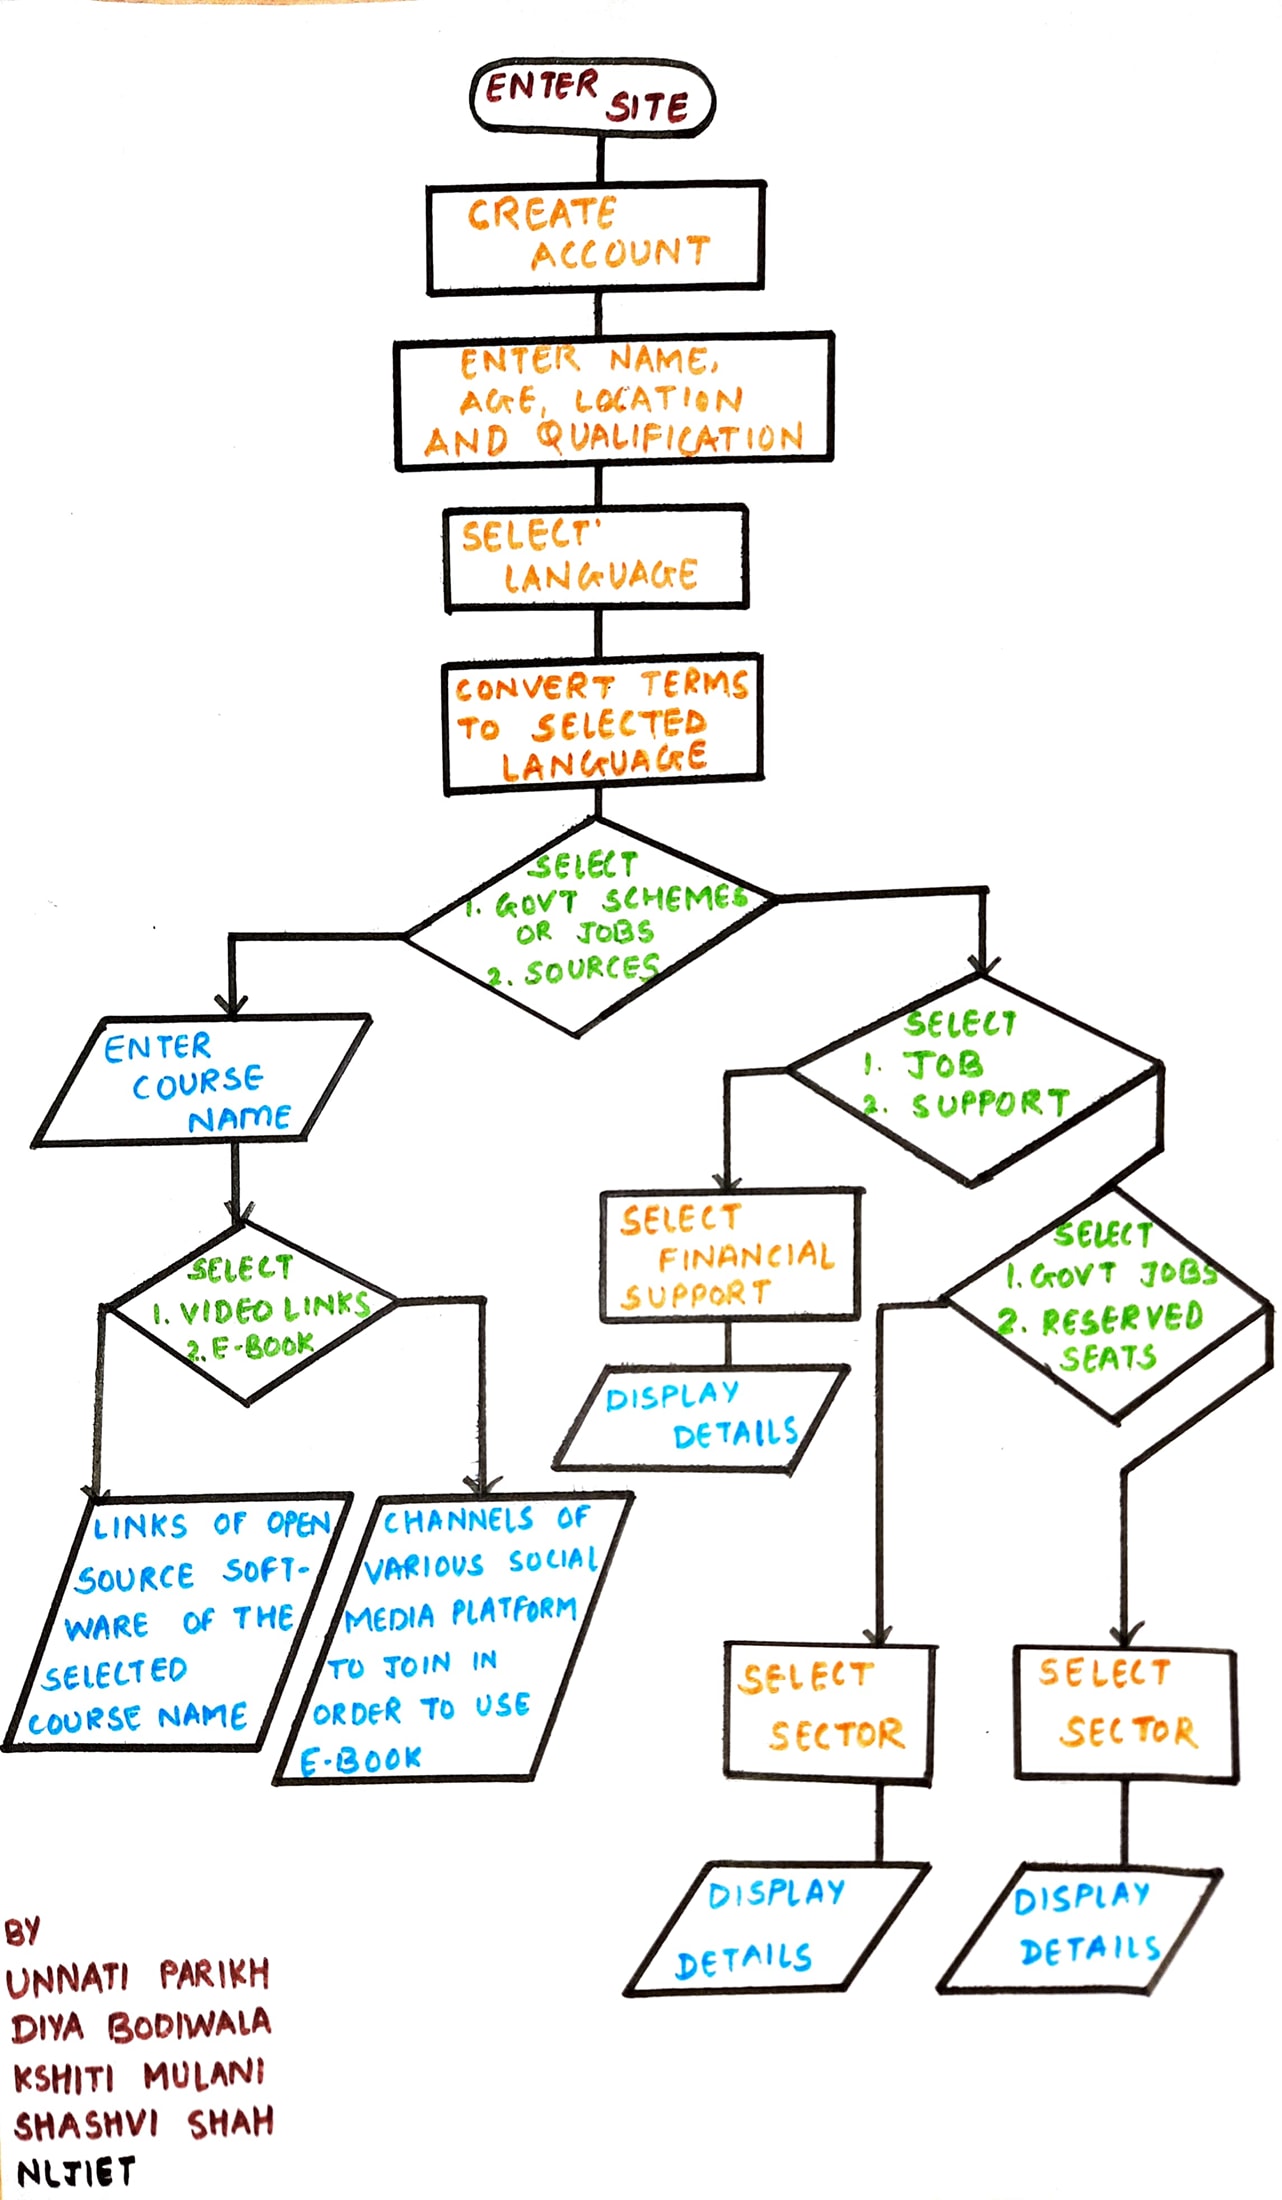 ENTER SITE
CREATE
ACCOUNT
ENTER NAME,
AGE, LOCATION
AND QUALIFICATION
SELECT
LANGUAGE
CONVERT TERMS
TO SELECTED
LANGUAGE
SELECT
1. GOVT SCHEMES
OR JOBS
2. SOURCES
ENTER
COURSE
NAME
SELECT
1. VIDEO LINKS
2. E-BOOK
LINKS OF OPEN
SOURCE SOFT-
WARE OF THE
SELECTED
COURSE NAME
CHANNELS OF
VARIOUS SOCIAL
MEDIA PLATFORM
TO JOIN IN
ORDER TO USE
E-BOOK
SELECT
1. JOB
2. SUPPORT
SELECT
FINANCIAL
SUPPORT
DISPLAY
DETAILS
SELECT
1. GOVT JOBS
2. RESERVED
SEATS
SELECT
SECTOR
DISPLAY
DETAILS
SELECT
SECTOR
DISPLAY
DETAILS
BY
UNNATI PARIKH
DIYA BODIWALA
KSHITI MULANI
SHASHVI SHAH
NLJIET